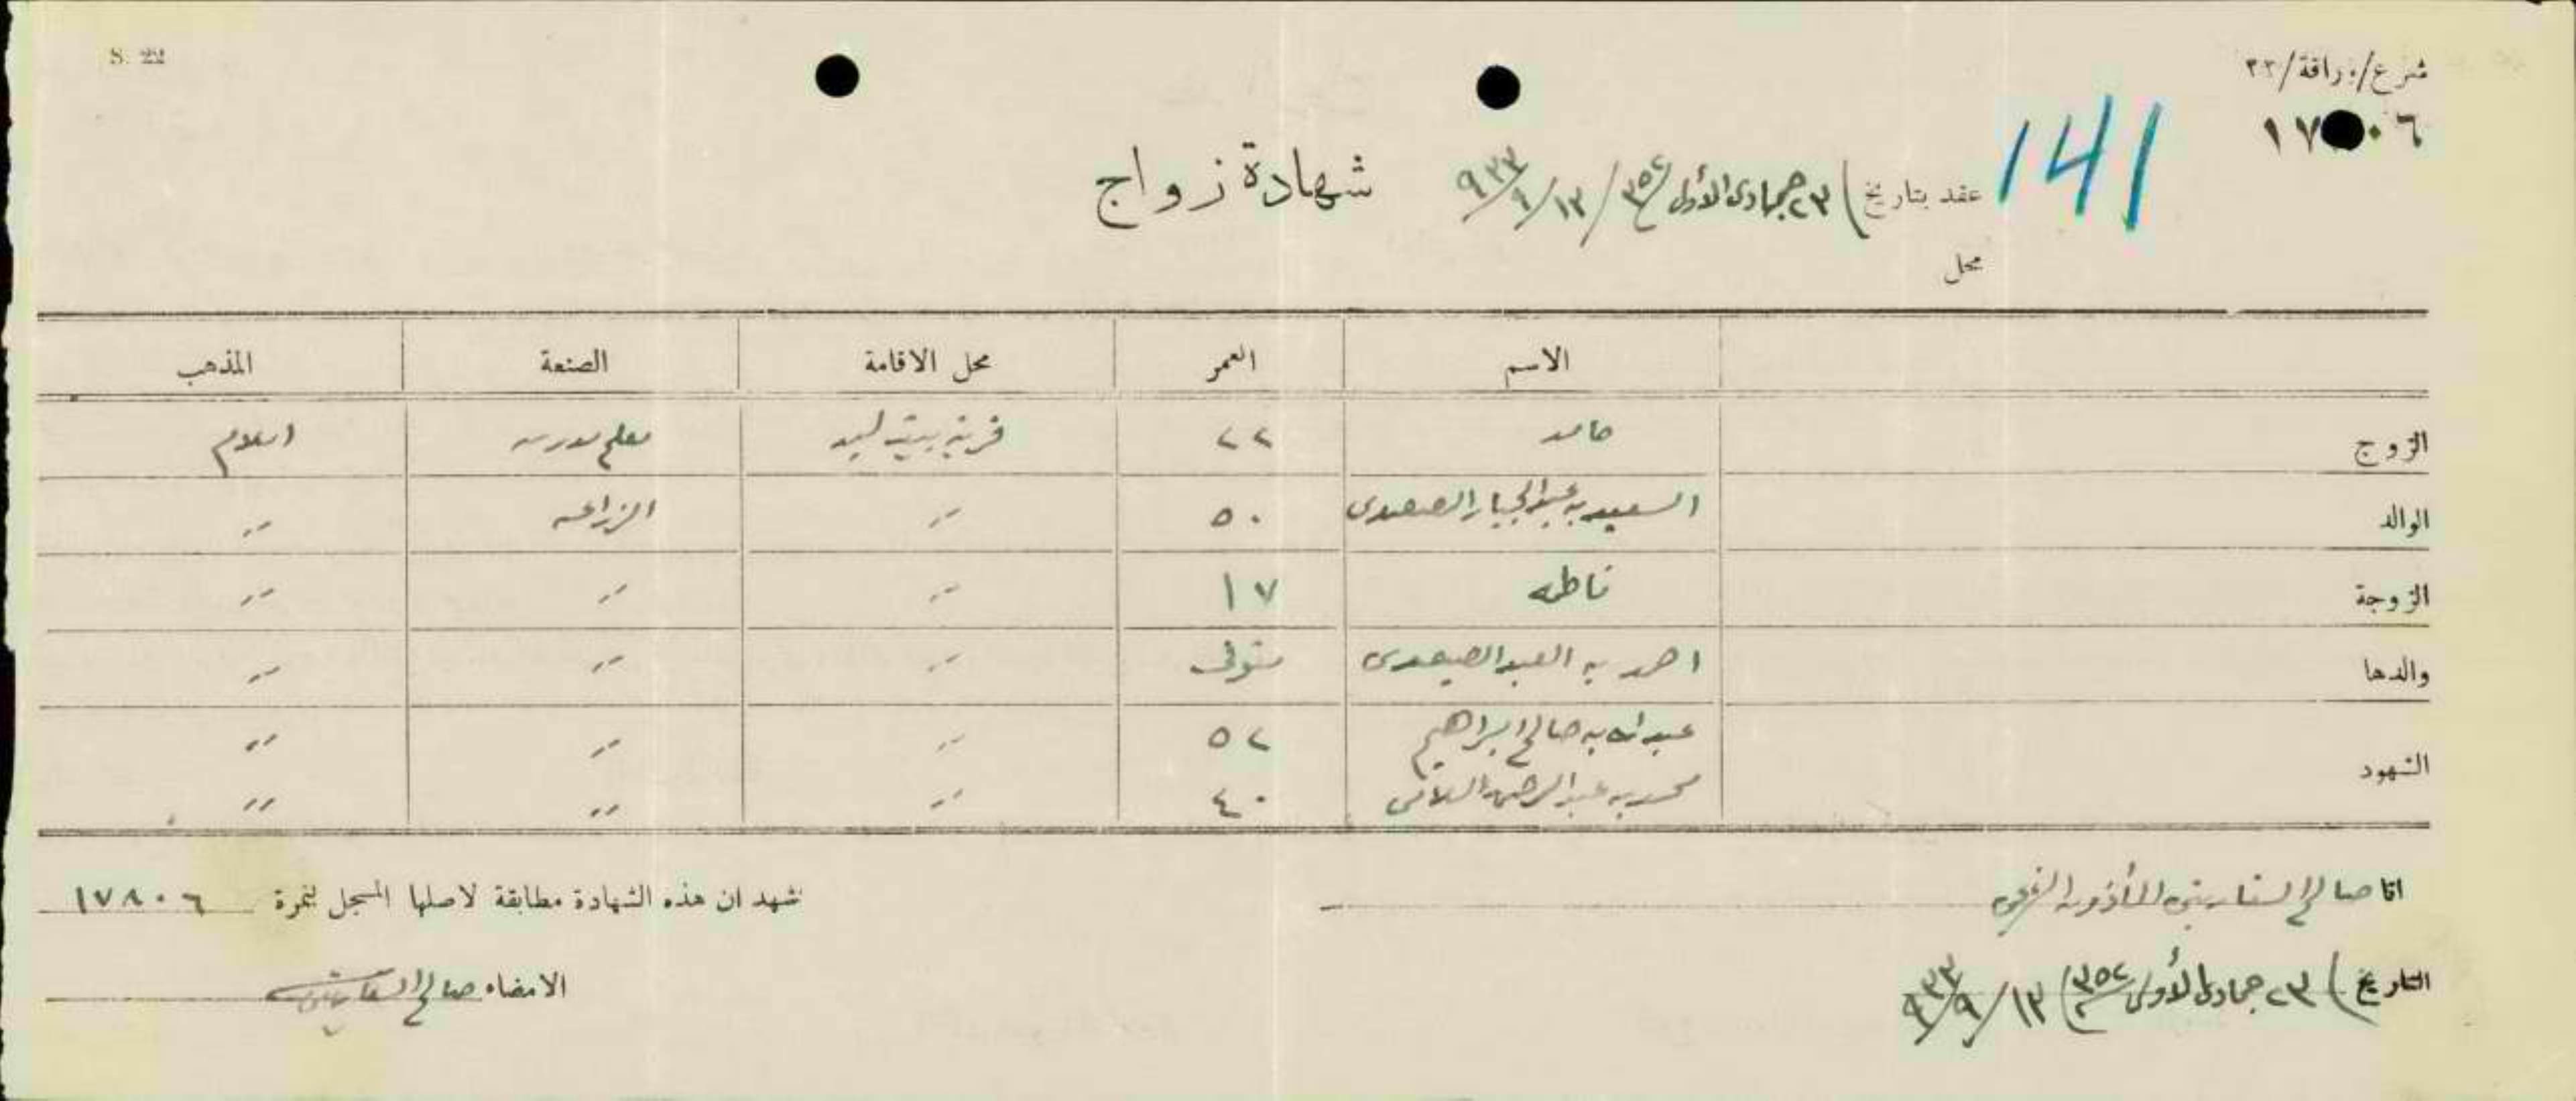 S. 22
شرع/وراقة/٢٢
١٧٠٦
141
عقد بتاريخ ) ٢٣ جمادى الأولى ٣٥٢ / ١٣ / ٩ / ٩٣٣ شهادة زواج
محل
الاسم العمر محل الاقامة الصنعة المذهب
الزوج حامد ٢٢ قرية بيت ليد معلم مدرسه اسلام
الوالد السعيد بن عبد الجبار الصعيدى ٥٠ " الزراعه "
الزوجة فاطمه ١٧ " " "
والدها احمد بن العبد الصعيدى متوفى " " "
الشهود عبد الله بن صالح ابراهيم ٥٢ " " "
محمد بن عبد الرحمن ٤٠ " " "
انا صالح السفارينى المأذون الشرعى نشهد ان هذه الشهادة مطابقة لاصلها المسجل بنمرة ١٧٨٠٦
التاريخ ) ٢٣ جمادى الأولى ٣٥٢ ) ١٣ / ٩ / ٩٣٣ الامضاء صالح السفارينى